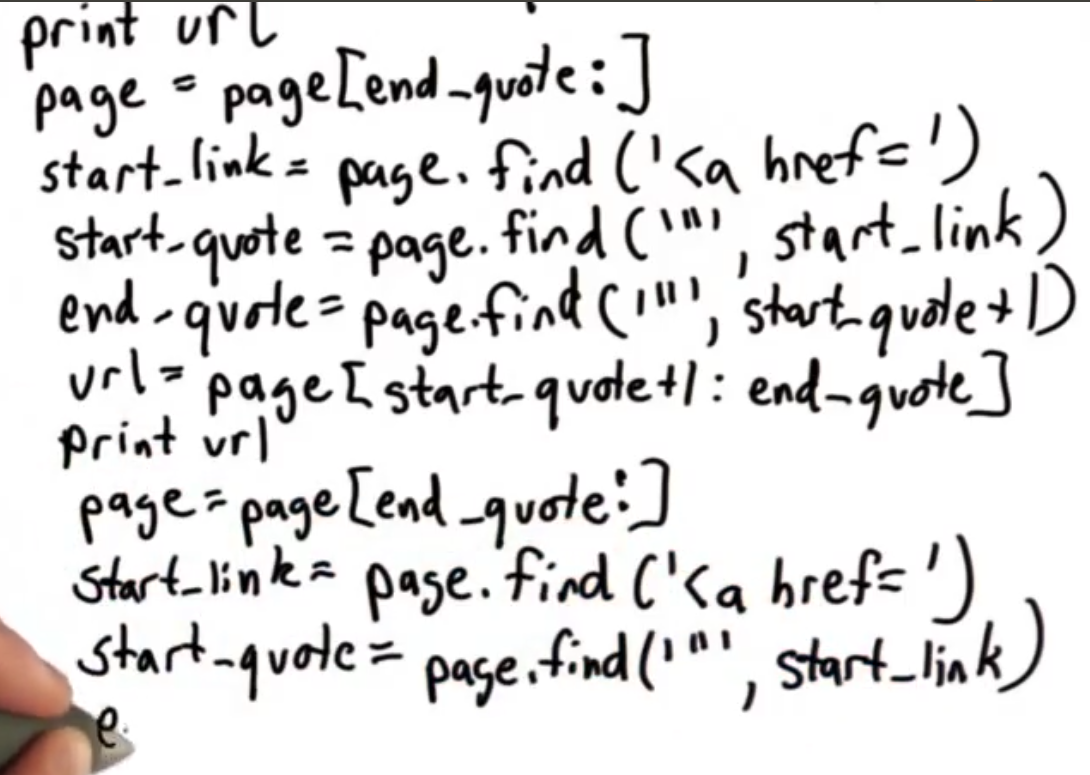 print url
page = page[end_quote:]
start_link = page.find('<a href=')
start_quote = page.find('"', start_link)
end_quote = page.find('"', start_quote+1)
url = page[start_quote+1: end_quote]
print url
page = page[end_quote:]
start_link = page.find('<a href=')
start_quote = page.find('"', start_link)
e